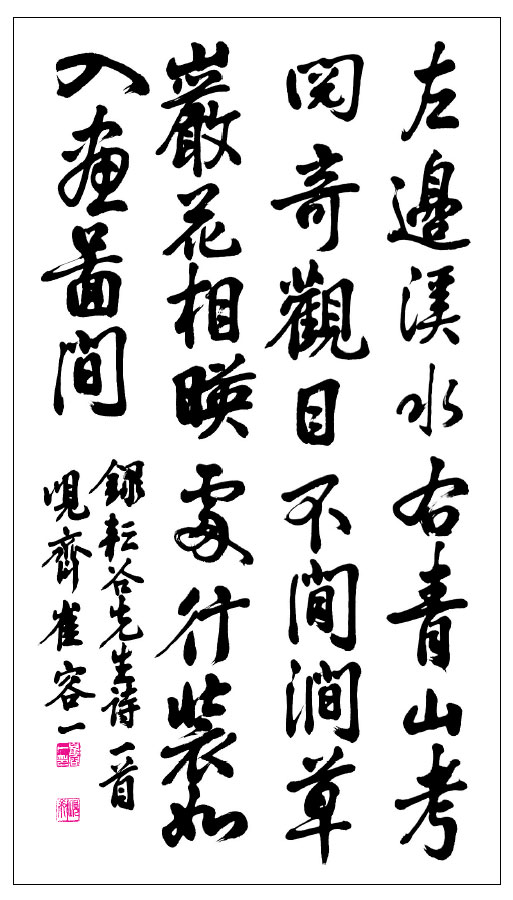 左邊溪水右青山考
閱奇觀目不閒澗草
巖花相暎處行裝如
入畫圖間
錄耘谷先生詩一首
晛齊崔容一